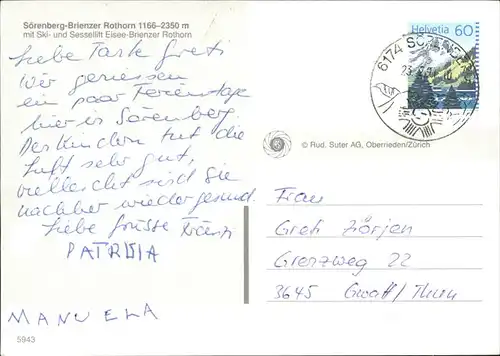 Sörenberg-Brienzer Rothorn 1166–2350 m
mit Ski- und Sessellift Eisee-Brienzer Rothorn
Liebe Tante Greti
Wir geniessen
ein paar Ferientage
hier in Sörenberg.
Den Kindern tut die
Luft sehr gut,
vielleicht sind sie
nachher wieder gesund.
Liebe Grüsse Fränzi
PATRICIA
MANUELA
5943
Helvetia 60
6174 SÖRENBERG
© Rud. Suter AG, Oberrieden/Zürich
Frau
Greti Zörjen
Grenzweg 22
3645 Gwatt/Thun